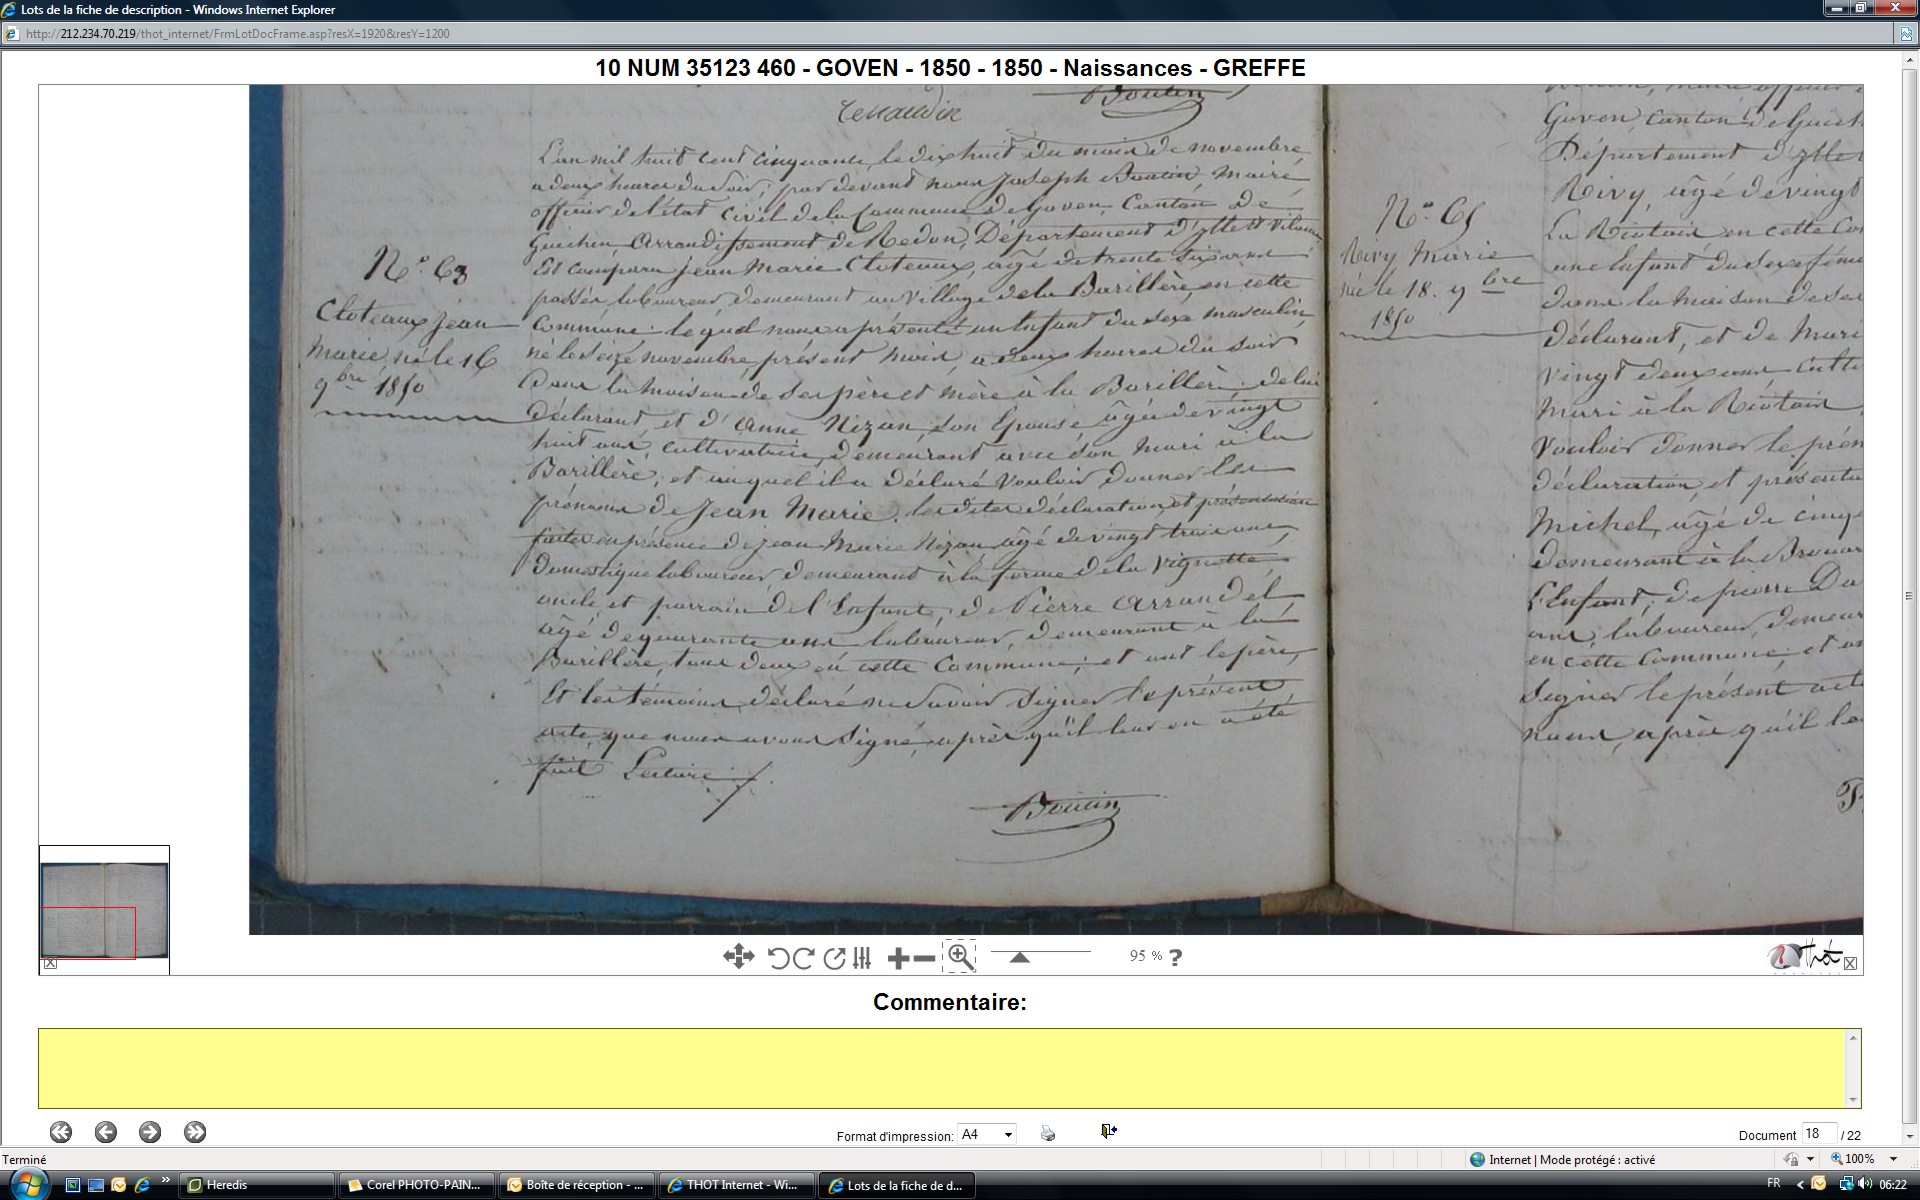 Lots de la fiche de description - Windows Internet Explorer
http://212.234.70.219/thot_internet/FrmLotDocFrame.asp?resX=1920&resY=1200
10 NUM 35123 460 - GOVEN - 1850 - 1850 - Naissances - GREFFE
Boutin
L'an mil huit cent cinquante, le dix huit du mois de novembre
a deux heures du soir; par devant nous Joseph Boutin Maire
officier de l'état civil de la Commune de Goven, Canton de
Guichen Arrondissement de Redon, Département d'ylle et Vilaine
Est comparu jean Marie Cloteaux, agé de trente six ans
passés laboureur demeurant au village de la Barillère, en cette
Commune: lequel nous a présenté un Enfant du sexe masculin,
né le seize novembre, présent mois, a deux heures du soir
dans la maison de ses père et mère à la Barillère, de lui
Déclarant, et d'Anne Nizan, son Epouse âgée de vingt
huit ans, cultivatrice, demeurant avec son mari à la
Barillère; et auquel il a déclaré vouloir donner les
prénoms de Jean Marie. les dites déclaration et présentation
faites en présence de jean Marie Nizan âgé de vingt trois ans,
domestique laboureur demeurant à la ferme de la Vignette
oncle et parrain de l'Enfant; de Pierre Arrondel
âgé de quarante ans laboureur, demeurant à la
Barillère, tous deux en cette Commune; et ont le père,
Et les témoins déclaré ne savoir signer le présent
acte que nous avons signé, après qu'il leur en a été
fait Lecture
Boutin
N° 63
Cloteaux jean
Marie, né le 16
9bre 1850
N° 65
Rivy Marie
née le 18. 9bre
1850
Goven, canton de Guich
Département d'ylle
Rivy, âgé de vingt
La Riotais en cette Co
une Enfant du sexe fémi
dans la maison de se
déclarant, et de Mari
vingt deux ans culti
mari à la Riotais
vouloir donner le prén
déclaration, et présenta
Michel, âgé de cinq
demeurant à la
L'Enfant; de pierre Da
ans, laboureur, demeur
en cette Commune; et o
signer le présent acte
nous, après qu'il le
95 %
Thot
Commentaire:
Format d'impression: A4
Document 18 / 22
Terminé
Internet | Mode protégé : activé
100%
Heredis
Corel PHOTO-PAIN...
Boîte de réception - ...
THOT Internet - Wi...
Lots de la fiche de d...
FR
06:22